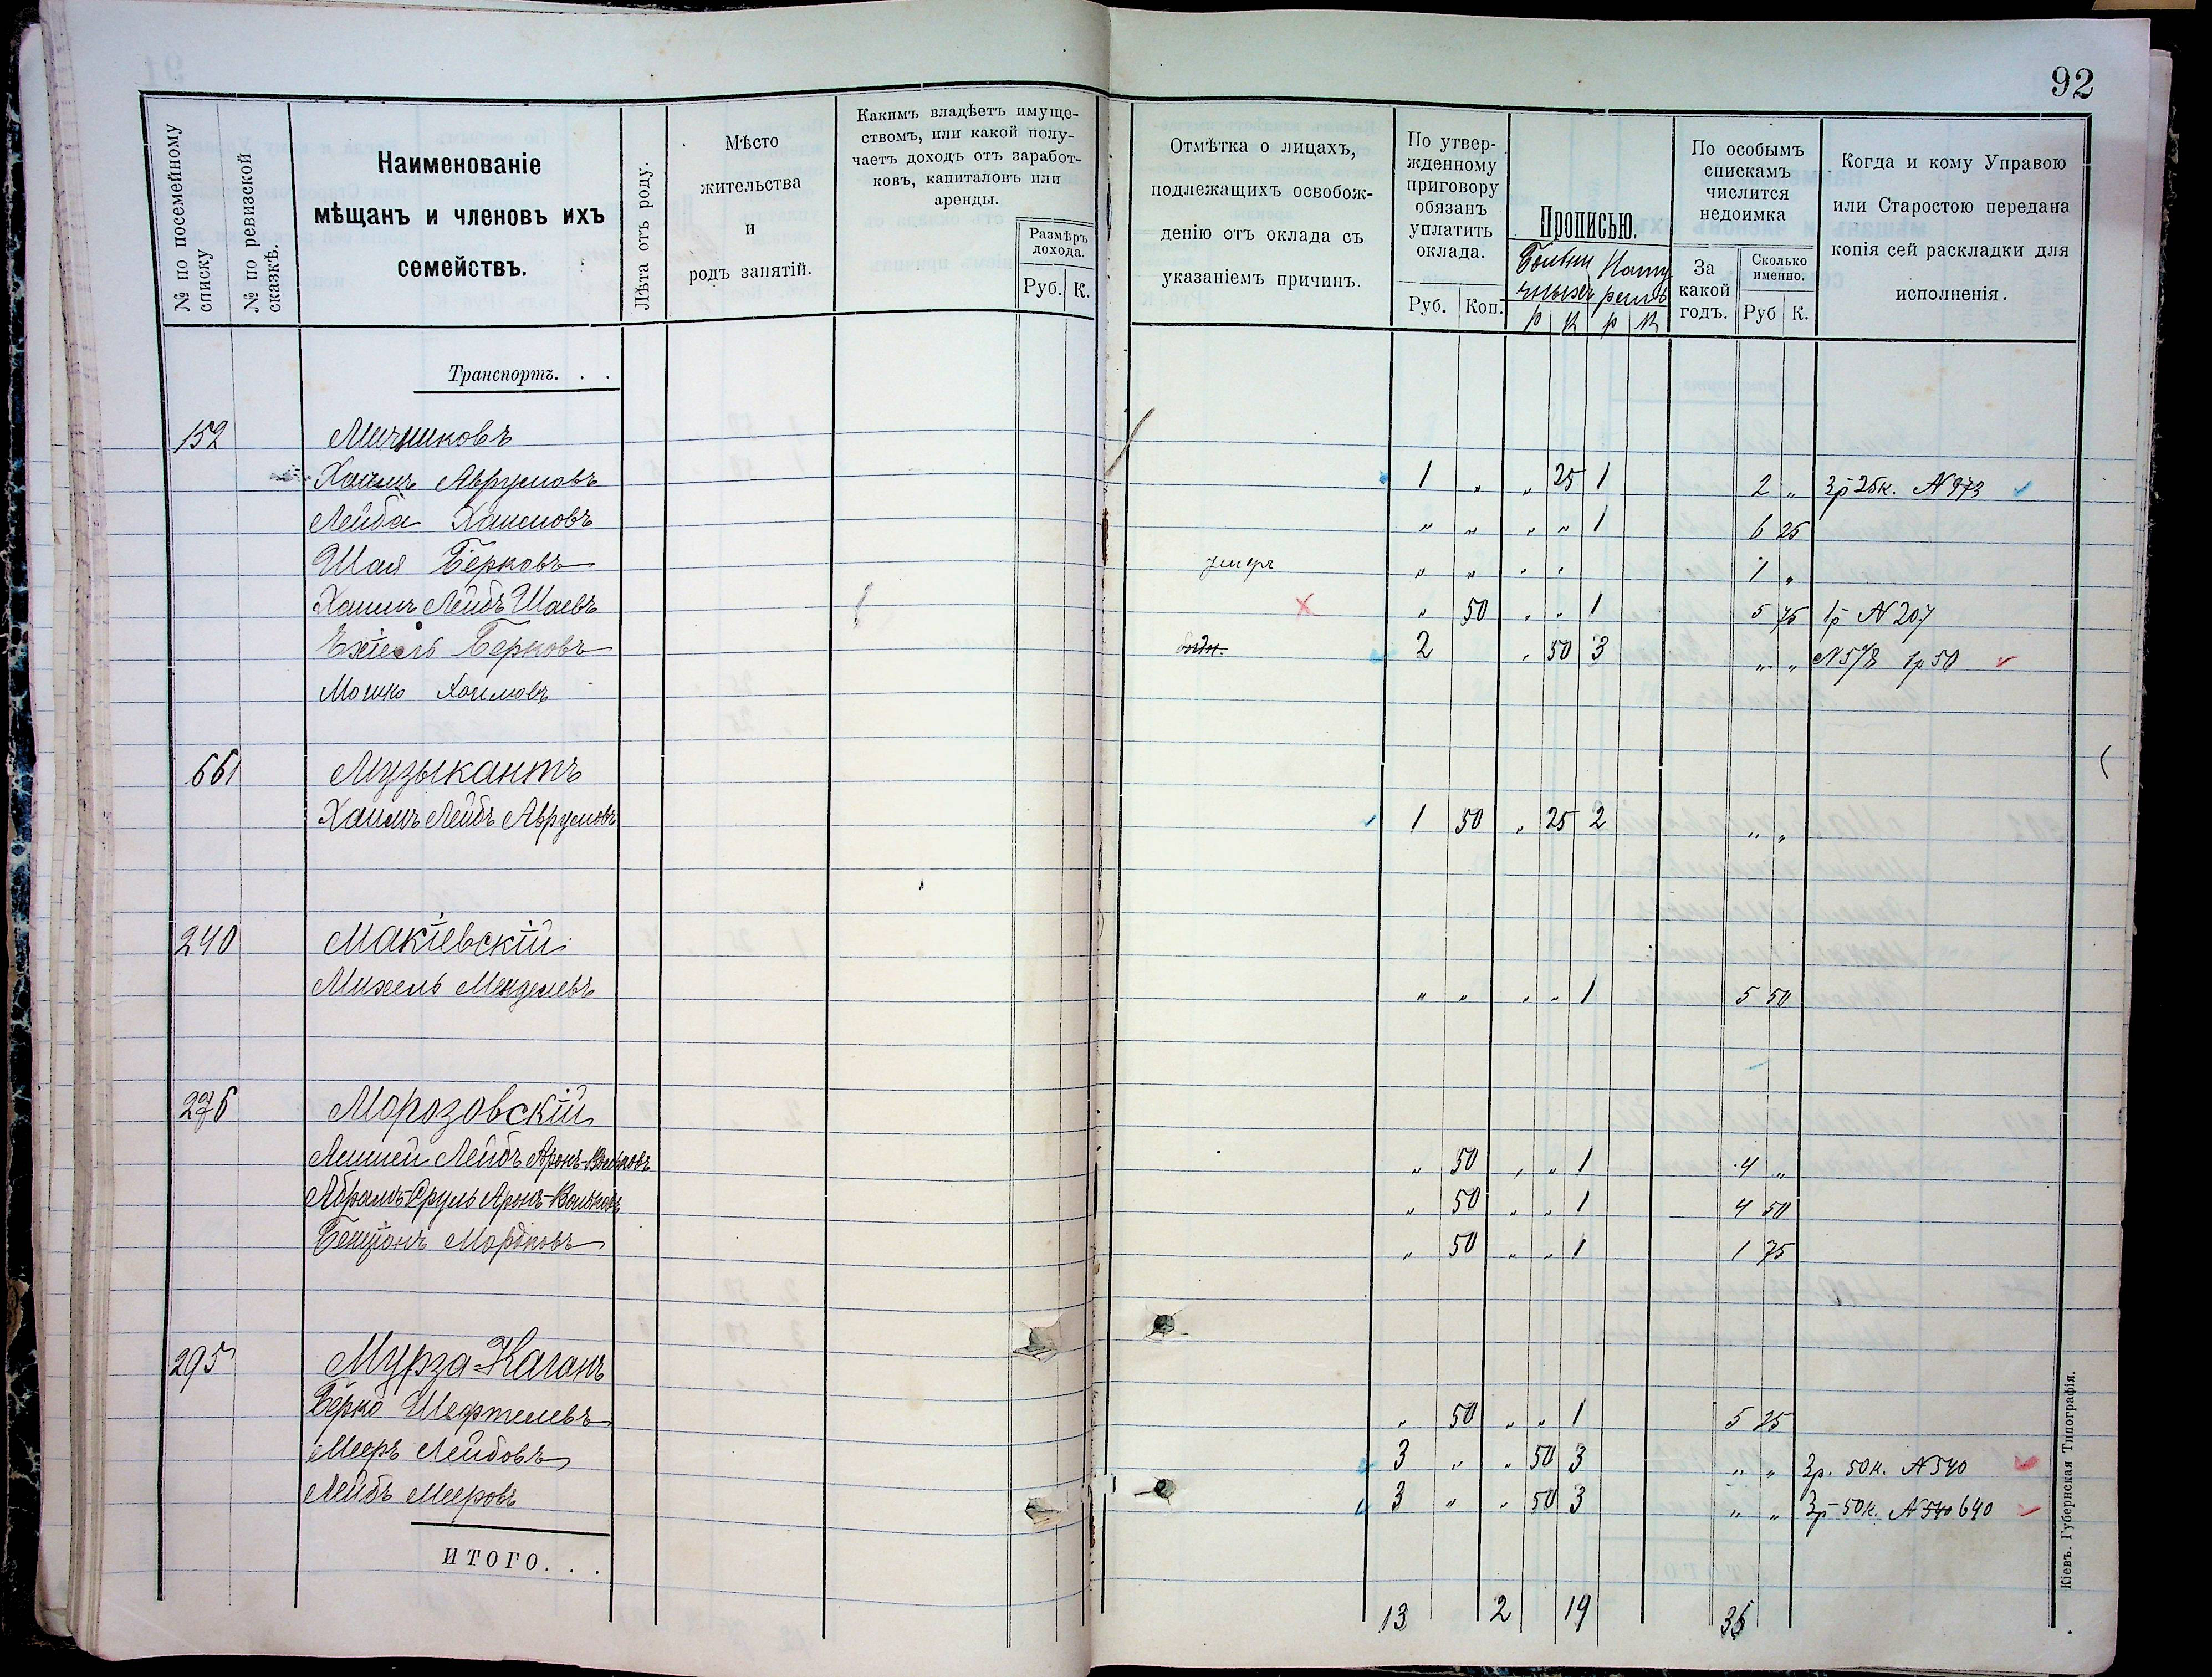 92
№ по посемейному списку
№ по ревизской сказкѣ.
Наименованіе
мѣщанъ и членовъ ихъ
семействъ.
Лѣта отъ роду.
Мѣсто
жительства
и
родъ занятій.
Какимъ владѣетъ имуще-
ствомъ, или какой полу-
чаетъ доходъ отъ заработ-
ковъ, капиталовъ или
аренды.
Размѣръ
дохода.
Руб. К.
Отмѣтка о лицахъ,
подлежащихъ освобож-
денію отъ оклада съ
указаніемъ причинъ.
По утвер-
жденному
приговору
обязанъ
уплатить
оклада.
Руб. Коп.
Прописью.
р к р к
По особымъ
спискамъ
числится
недоимка
За
какой
годъ.
Сколько
именно.
Руб К.
Когда и кому Управою
или Старостою передана
копія сей раскладки для
исполненія.
Транспортъ. . .
152 Мичниковъ
Хаимъ Аврумовъ 1 „ „ 25 1 2 „ 3р 25к. N 973
Лейба Хаимовъ „ „ „ „ 1 6 25
Шая Берковъ умеръ „ „ „ „ 1 „
Хаимъ Лейбъ Шаевъ „ 50 „ „ 1 5 75 1р N 207
Ехіель Берковъ 2 „ 50 3 „ „ N 578 1р 50
Мошко Хаимовъ
661 Музыкантъ
Хаимъ Лейбъ Аврумовъ 1 50 „ 25 2 „ „
240 Макіевскій
Михель Менделевъ „ „ „ „ 1 5 50
276 Морозовскій
Лейбъ Аронъ-Вольковъ „ 50 „ „ 1 4 „
Абрамъ Сруль Аронъ-Вольковъ „ 50 „ „ 1 4 50
Бенціонъ Мордковъ „ 50 „ „ 1 1 75
295 Мурза-Каганъ
Берко Шефтелевъ „ 50 „ „ 1 5 25
Мееръ Лейбовъ 3 „ „ 50 3 „ „ 3р. 50к. N 540
Лейбъ Мееровъ 3 „ „ 50 3 „ „ 3р 50к. N 540 640
ИТОГО. . .
13 2 19 36
Кіевъ. Губернская Типографія.